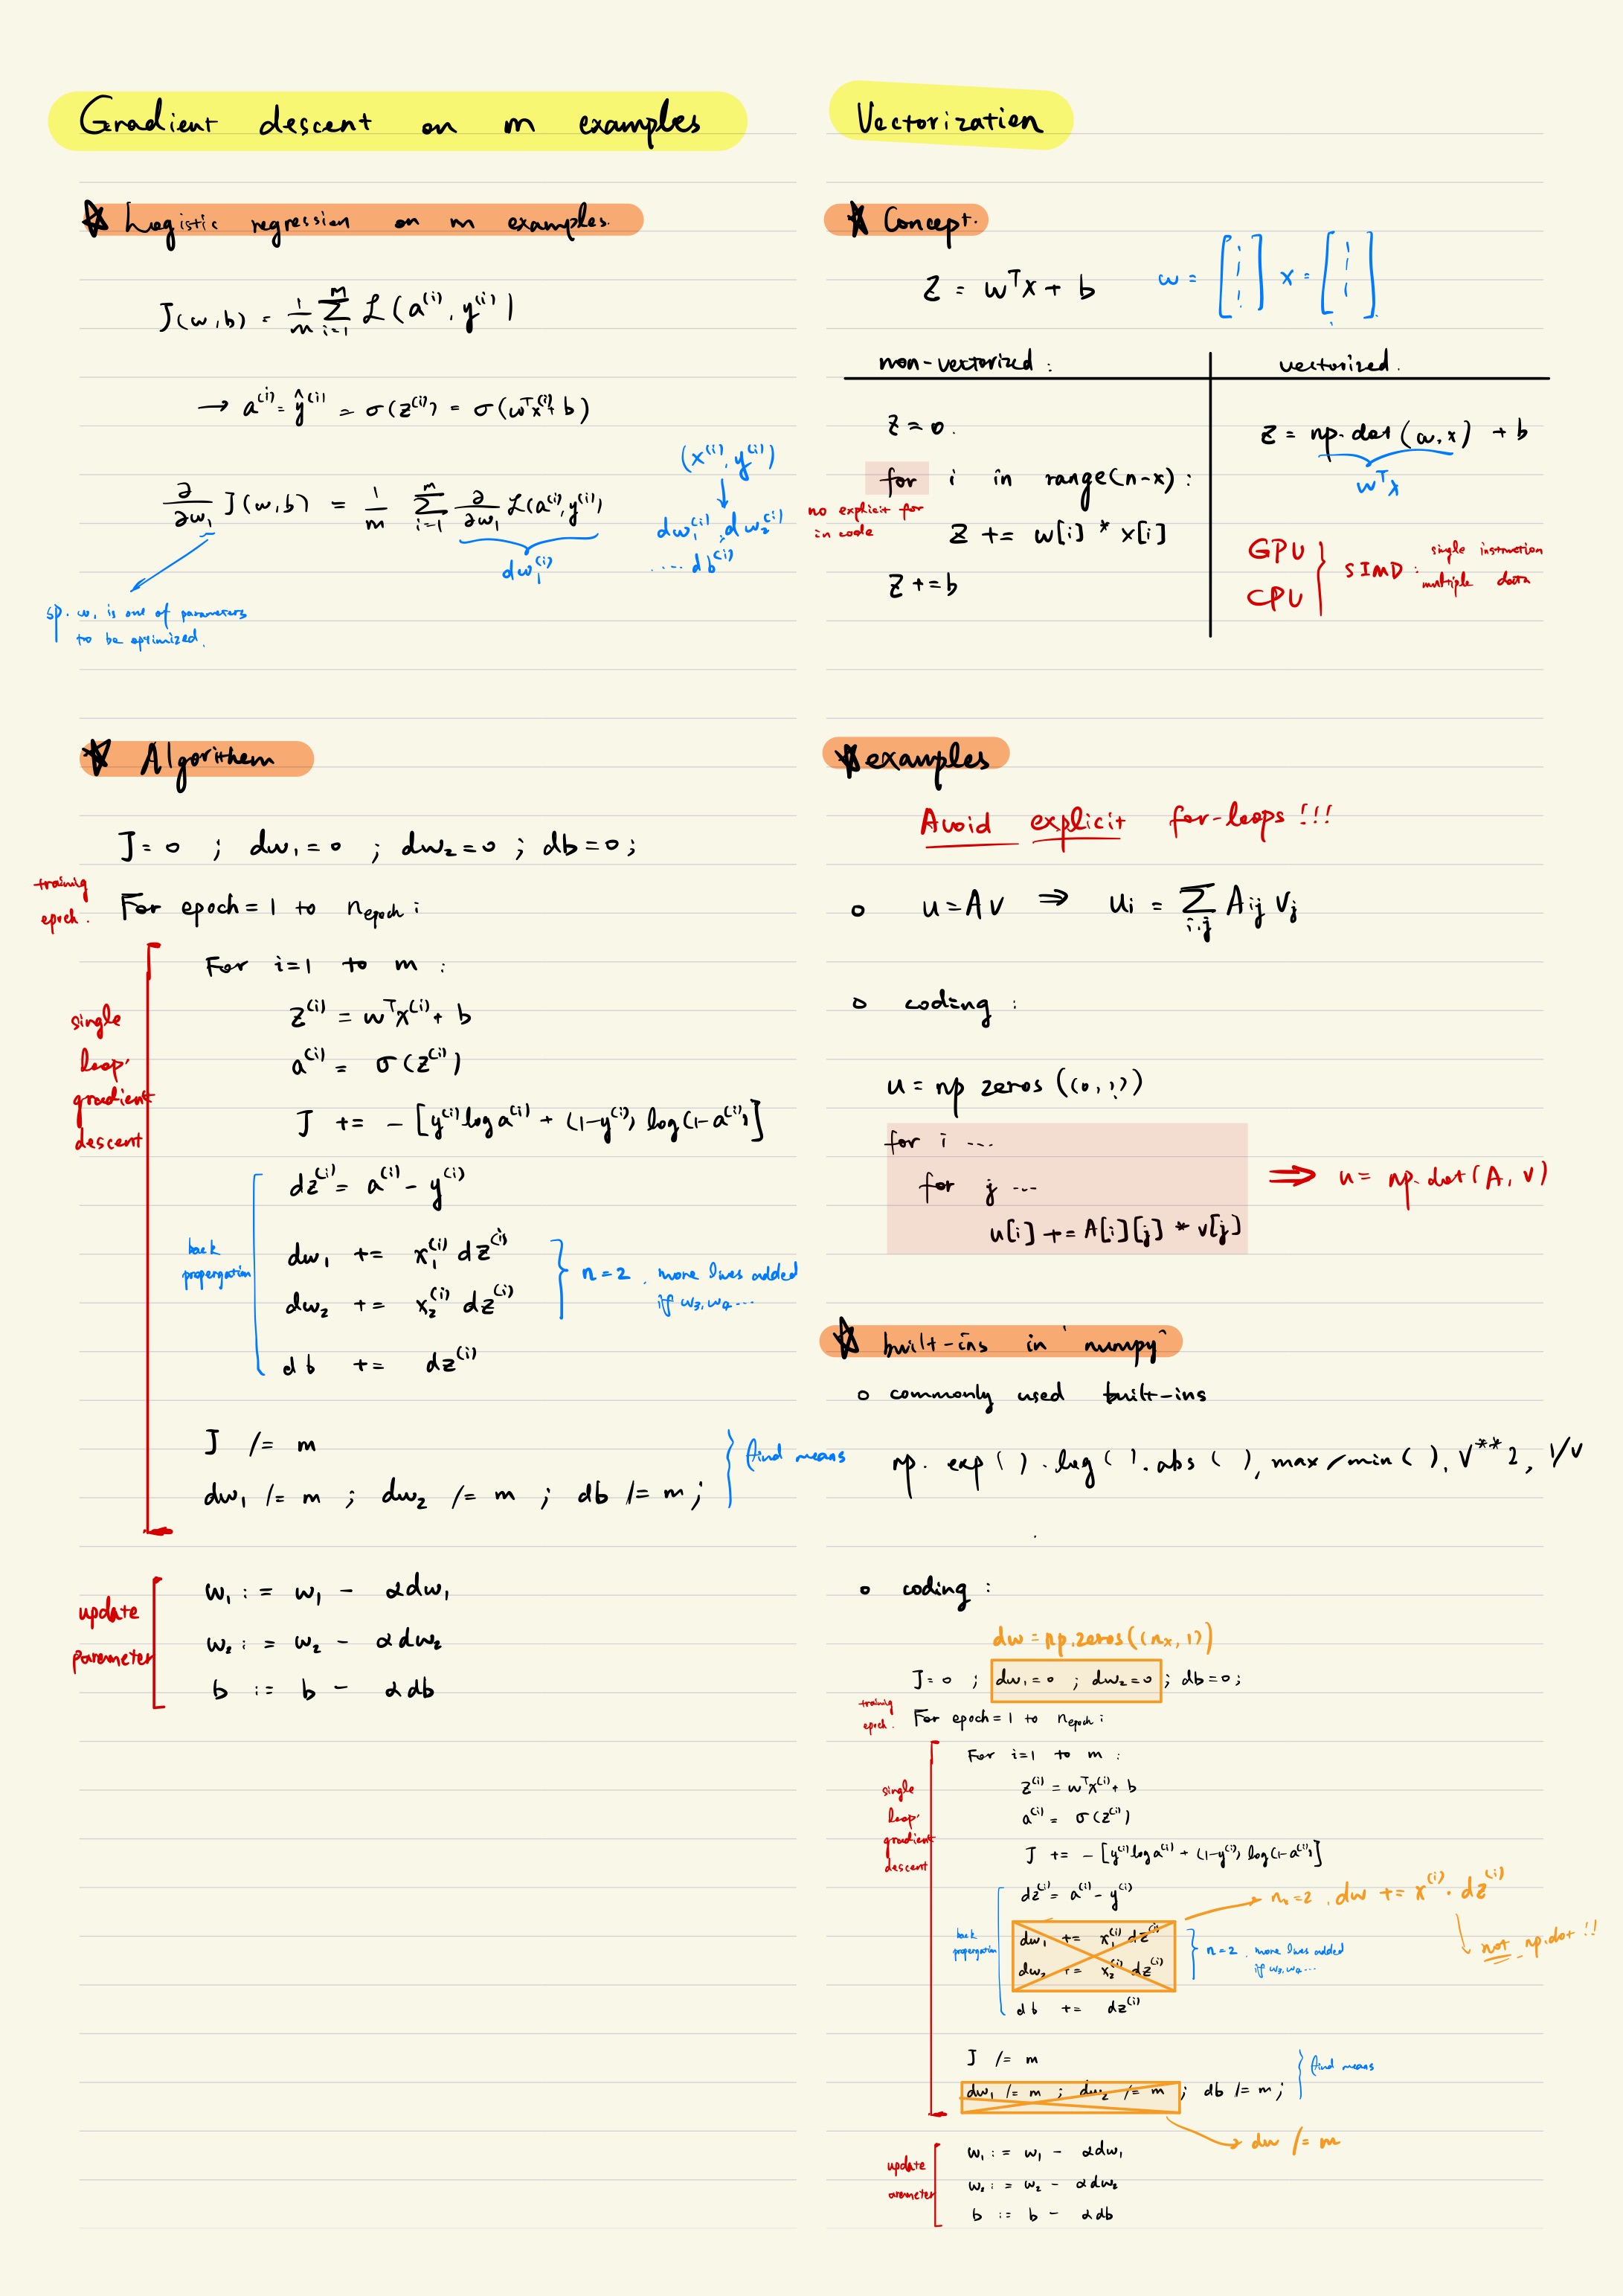 Gradient descent on m examples
☆ Logistic regression on m examples.
J(w,b) = 1/m Σ_{i=1}^{m} L(a^(i), y^(i))
→ a^(i) = ŷ^(i) = σ(z^(i)) = σ(w^T x^(i) + b)
∂/∂w₁ J(w,b) = 1/m Σ_{i=1}^{m} ∂/∂w₁ L(a^(i), y^(i))
dw₁^(i)
(x^(i), y^(i))
↓
dw₁^(i), dw₂^(i)
.... db^(i)
sp. w₁ is one of parameters
to be optimized.
☆ Algorithem
J = 0 ; dw₁ = 0 ; dw₂ = 0 ; db = 0;
training
epoch.
For epoch = 1 to n_epoch :
single
loop
gradient
descent
For i=1 to m :
z^(i) = w^T x^(i) + b
a^(i) = σ(z^(i))
J += - [y^(i) log a^(i) + (1-y^(i)) log(1-a^(i))]
back
propergation
dz^(i) = a^(i) - y^(i)
dw₁ += x₁^(i) dz^(i)
dw₂ += x₂^(i) dz^(i)
n=2. more lines added
if w₃, w₄ ...
db += dz^(i)
J /= m
dw₁ /= m ; dw₂ /= m ; db /= m;
find means
update
parameter
w₁ := w₁ - αdw₁
w₂ := w₂ - αdw₂
b := b - αdb
Vectorization
☆ Concept.
Z = w^T x + b
w = [ ] x = [ ]
non-vectorized :
Z = 0.
for i in range(n-x) :
no explicit for
in code
Z += w[i] * x[i]
Z += b
vectorized.
Z = np.dot(w,x) + b
w^T x
GPU
CPU
SIMD : single instruction
multiple data
☆ examples
Avoid explicit for-loops !!!
o u = Av ⇒ u_i = Σ_{i,j} A_ij v_j
o coding :
u = np zeros ((0, 1))
for i ...
for j ...
u[i] += A[i][j] * v[j]
⇒ u = np.dot(A, v)
☆ built-ins in `numpy`
o commonly used built-ins
np. exp( ). log( ). abs( ), max/min( ). V**2, 1/v
o coding :
dw = np.zeros((nx, 1))
J = 0 ; dw₁ = 0 ; dw₂ = 0 ; db = 0;
training
epoch.
For epoch = 1 to n_epoch :
single
loop
gradient
descent
For i=1 to m :
z^(i) = w^T x^(i) + b
a^(i) = σ(z^(i))
J += - [y^(i) log a^(i) + (1-y^(i)) log(1-a^(i))]
back
propergation
dz^(i) = a^(i) - y^(i)
→ nx=2. dw += x^(i) · dz^(i)
not np.dot !!
dw₁ += x₁^(i) dz^(i)
dw₂ += x₂^(i) dz^(i)
n=2. more lines added
if w₃, w₄ ...
db += dz^(i)
J /= m
dw₁ /= m ; dw₂ /= m ; db /= m;
find means
→ dw /= m
update
arameter
w₁ := w₁ - αdw₁
w₂ := w₂ - αdw₂
b := b - αdb